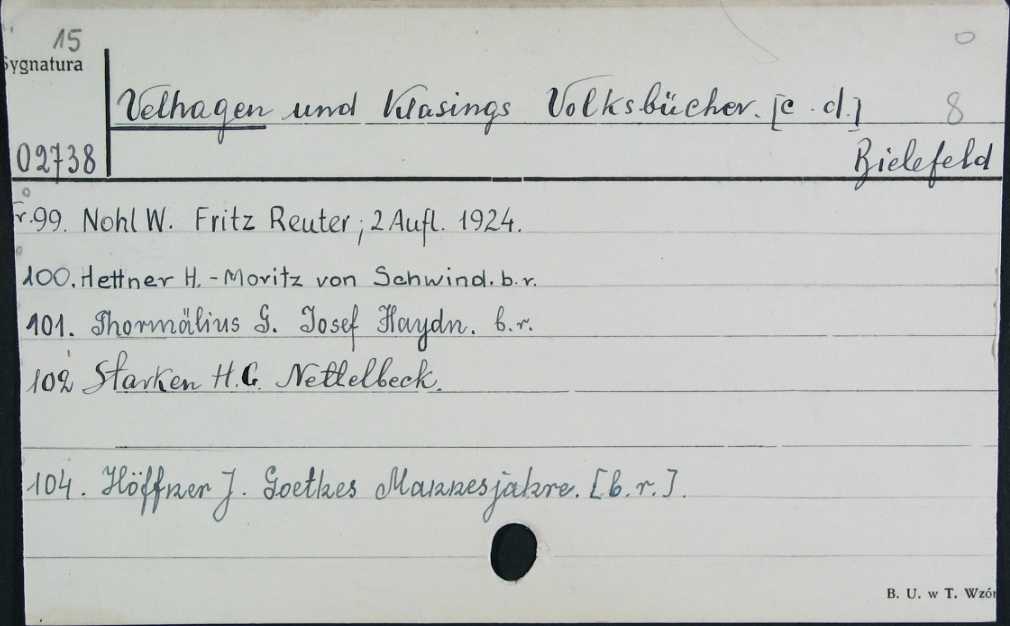 15
Sygnatura
Velhagen und Klasings Volksbücher. [c. d.] 8
02738 Bielefeld
r. 99. Nohl W. Fritz Reuter; 2 Aufl. 1924.
100. Hettner H. - Moritz von Schwind. b. r.
101. Thormälius G. Josef Haydn. b. r.
102 Starken H. G. Nettelbeck.
104. Höffner J. Goethes Mannesjahre. [b. r.].
B. U. w T. Wzór